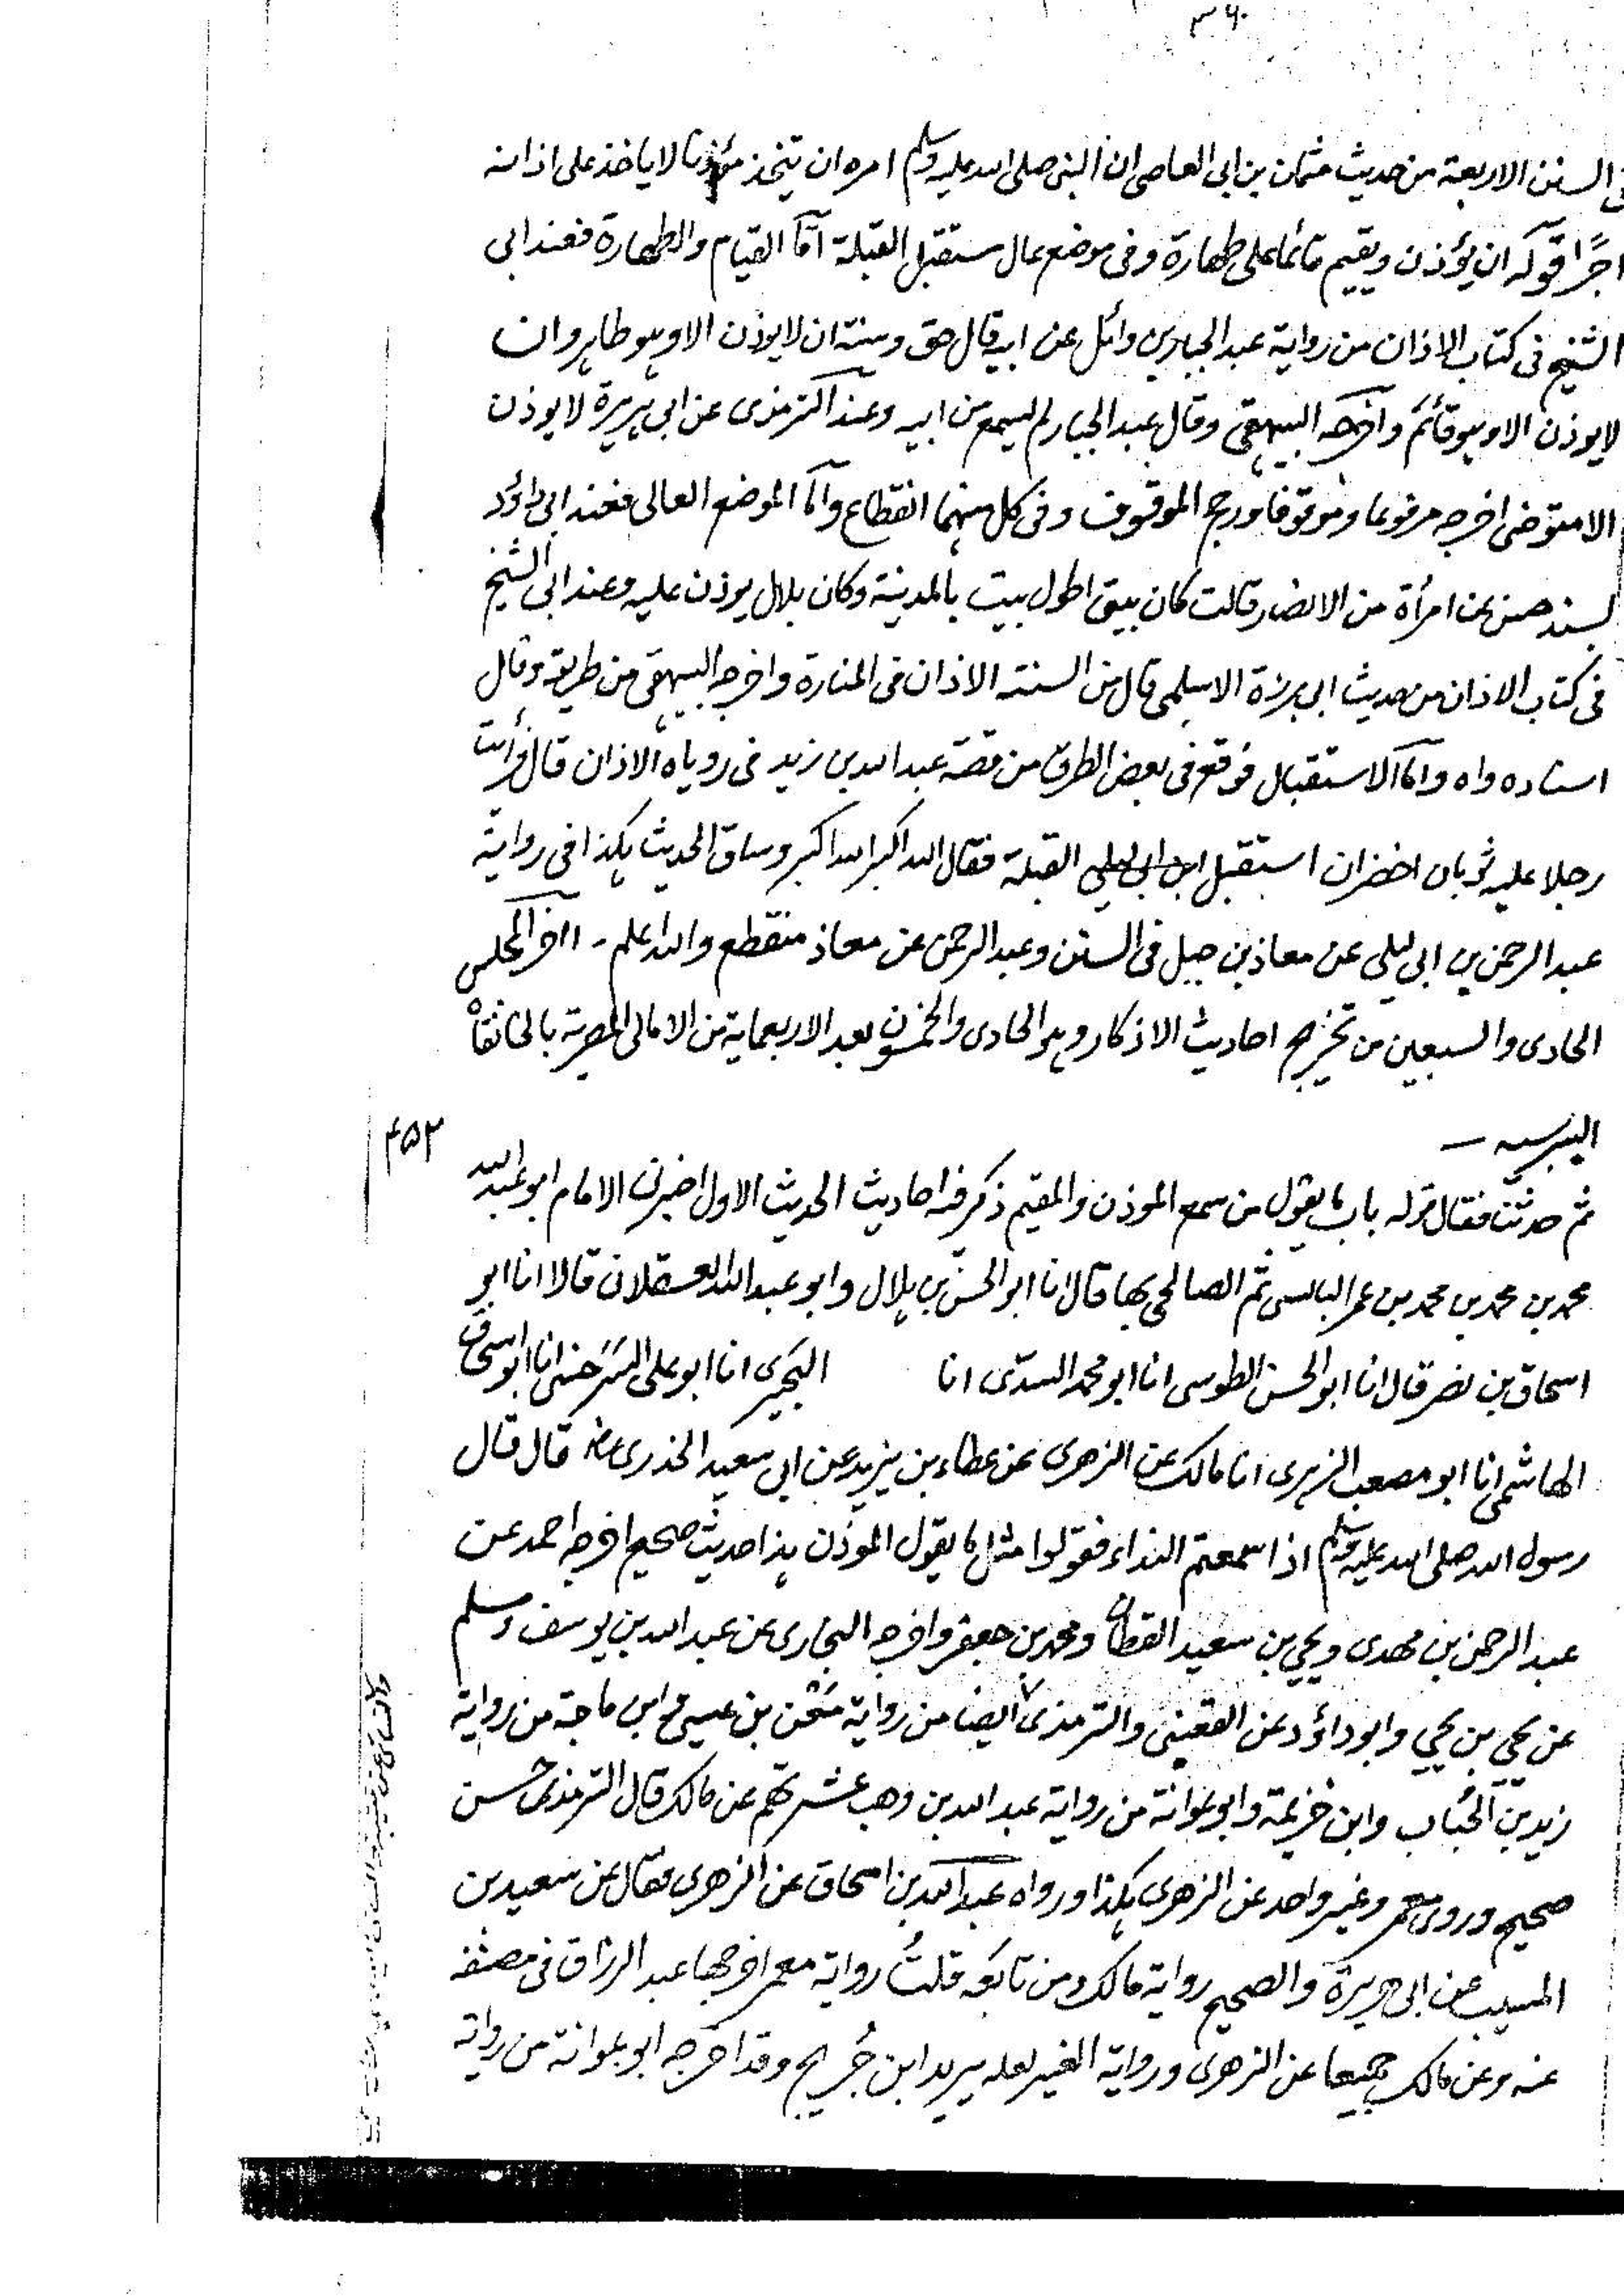 ٣٦٠
فى السنن الاربعة من حديث عثمان بن ابى العاصى ان النبى صلى الله عليه وسلم امره ان يتخذ مؤذنا لا ياخذ على اذانه
اجرًا قوله ان يؤذن ويقيم قائما على طهارة وفى موضع عال مستقبل القبلة امّا القيام والطهارة فعند ابى
الشيخ فى كتاب الاذان من رواية عبد الجبار بن وائل عن ابيه قال حق وسنة ان لا يوذن الا وهو طاهر وان
لا يوذن الا وهو قائم واخرجه البيهقى وقال عبد الجبار لم يسمع من ابيه وعند الترمذى عن ابى هريرة لا يوذن
الا متوضى اخرجه مرفوعا وموقوفا ورجح الموقوف وفى كل منهما انقطاع وامّا الموضع العالى فعند ابى داؤد
بسند حسن عن امرأة من الانصار قالت كان بيتى اطول بيت بالمدينة وكان بلال يوذن عليه وعند ابى الشيخ
فى كتاب الاذان من حديث ابى برزة الاسلمى قال من السنة الاذان فى المنارة واخرجه البيهقى من طريقه وقال
اسناده واه وامّا الاستقبال فوقع فى بعض الطرق من قصة عبد الله بن زيد فى روياه الاذان قال فرأيت
رجلا عليه ثوبان اخضران استقبل ابن ابى ليلى القبلة فقال الله اكبر الله اكبر وساق الحديث هكذا فى رواية
عبد الرحمن بن ابى ليلى عن معاذ بن جبل فى السنن وعبد الرحمن عن معاذ منقطع والله اعلم - اخر المجلس
الحادى والسبعين من تخريج احاديث الاذكار وهو الحادى والخمسون بعد الاربعماية من الامالى المصرية بالخانقاه
البيبرسيه —
٤٥٢
ثم حدثنا فقال قوله باب ما يقول من سمع الموذن والمقيم ذكر فيه احاديث الحديث الاول اخبرنى الامام ابو عبد الله
محمد بن محمد بن محمد بن عمر البالسى ثم الصالحى بها قال انا ابو الحسن بن هلال وابو عبد الله العسقلانى قالا انا ابو
اسحاق بن نضر قال انا ابو الحسن الطوسى انا ابو محمد السدّى انا البحيرى انا ابو على السرخسى انا ابو اسحٰق
الهاشمى انا ابو مصعب الزهرى انا مالك عن الزهرى عن عطاء بن يزيد عن ابى سعيد الخدرى رضى قال قال
رسول الله صلى الله عليه وسلم اذا سمعتم النداء فقولوا مثل ما يقول الموذن هذا حديث صحيح اخرجه احمد عن
عبد الرحمن بن مهدى ويحيى بن سعيد القطان ومحمد بن جعفر واخرجه البخارى عن عبد الله بن يوسف ومسلم
عن يحيى بن يحيى وابو داؤد عن القعينى والترمذى ايضا من رواية مَعْن بن عيسى وابن ماجة من رواية
زيد بن الحُبَاب وابن خزيمة وابو عوانة من رواية عبد الله بن وهب عشرتهم عن مالك قال الترمذى حسن
صحيح وروى معمر وغير واحد عن الزهرى هكذا ورواه عبد الله بن اسحاق عن الزهرى فقال عن سعيد بن
المسيب عن ابى هريرة والصحيح رواية مالك ومن تابعه قلتُ رواية معمر اخرجها عبد الرزاق فى مصنفه
عنه وعن مالك جميعا عن الزهرى ورواية الغير لعله يريد ابن جُريج وقد اخرجه ابو عوانة من رواية